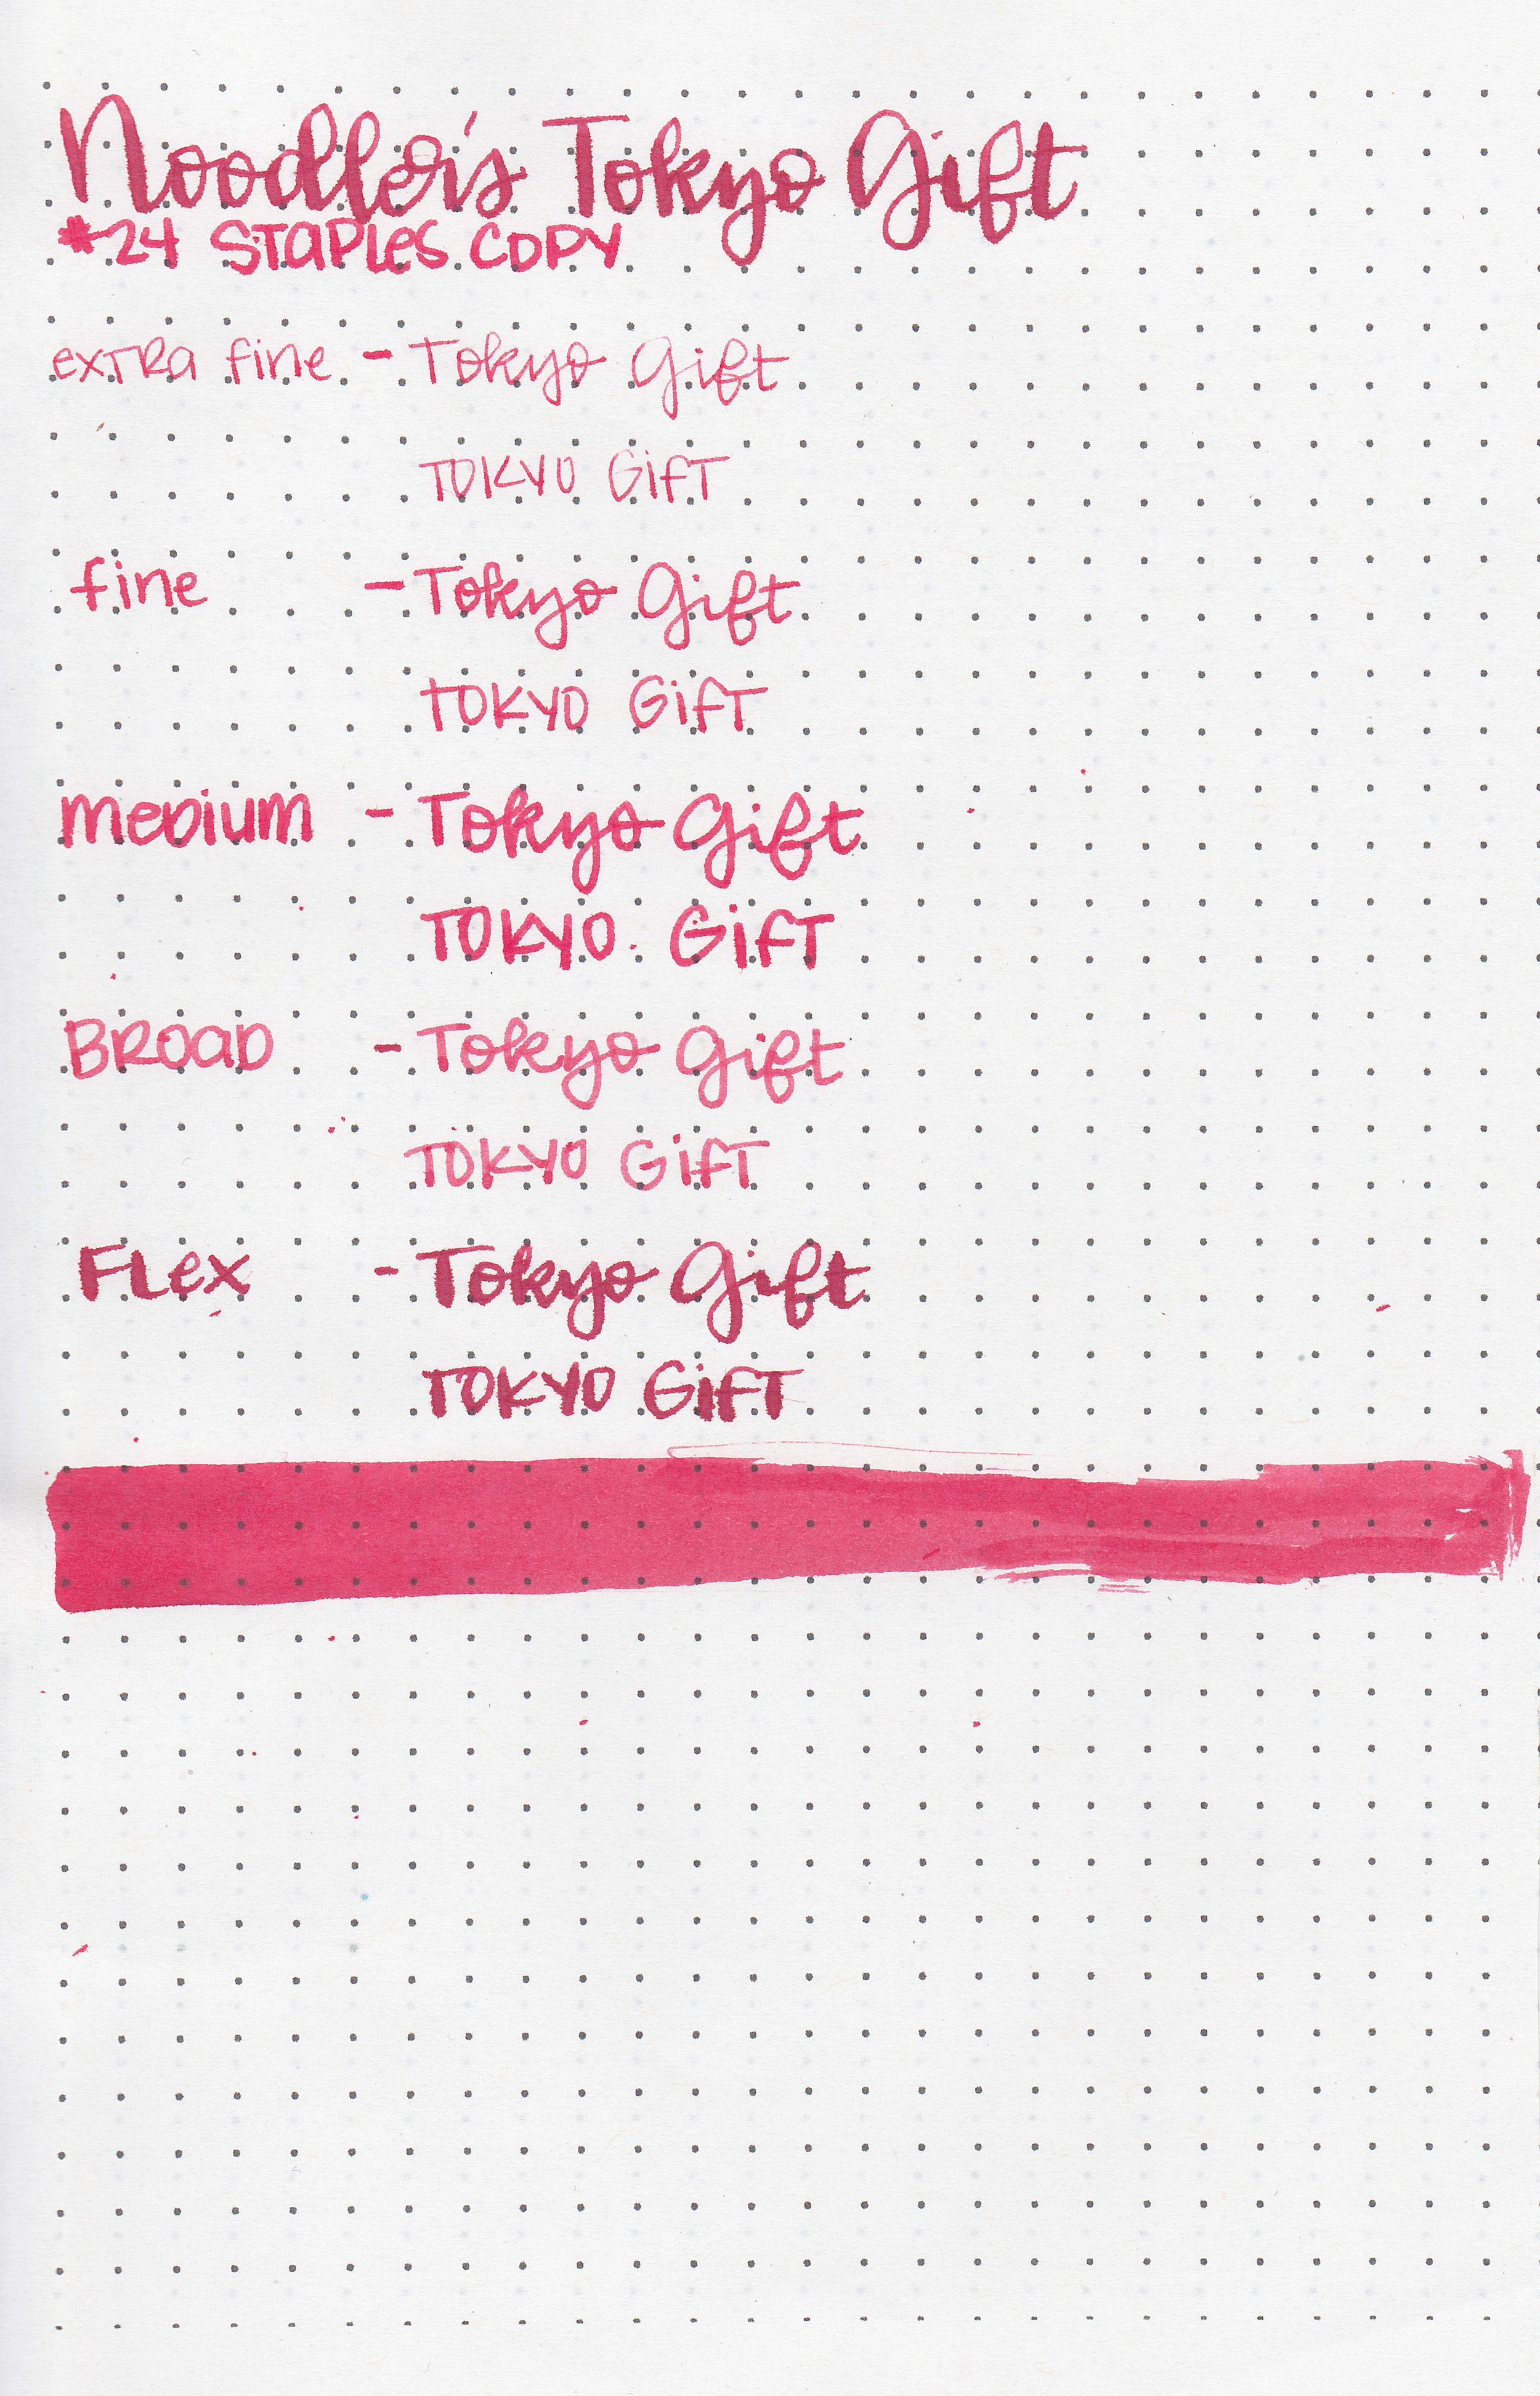 Noodler's Tokyo Gift
#24 STAPLES COPY
extra fine - Tokyo Gift
TOKYO GIFT
fine - Tokyo Gift
TOKYO GIFT
medium - Tokyo Gift
TOKYO GIFT
BROAD - Tokyo Gift
TOKYO GIFT
FLex - Tokyo Gift
TOKYO GIFT